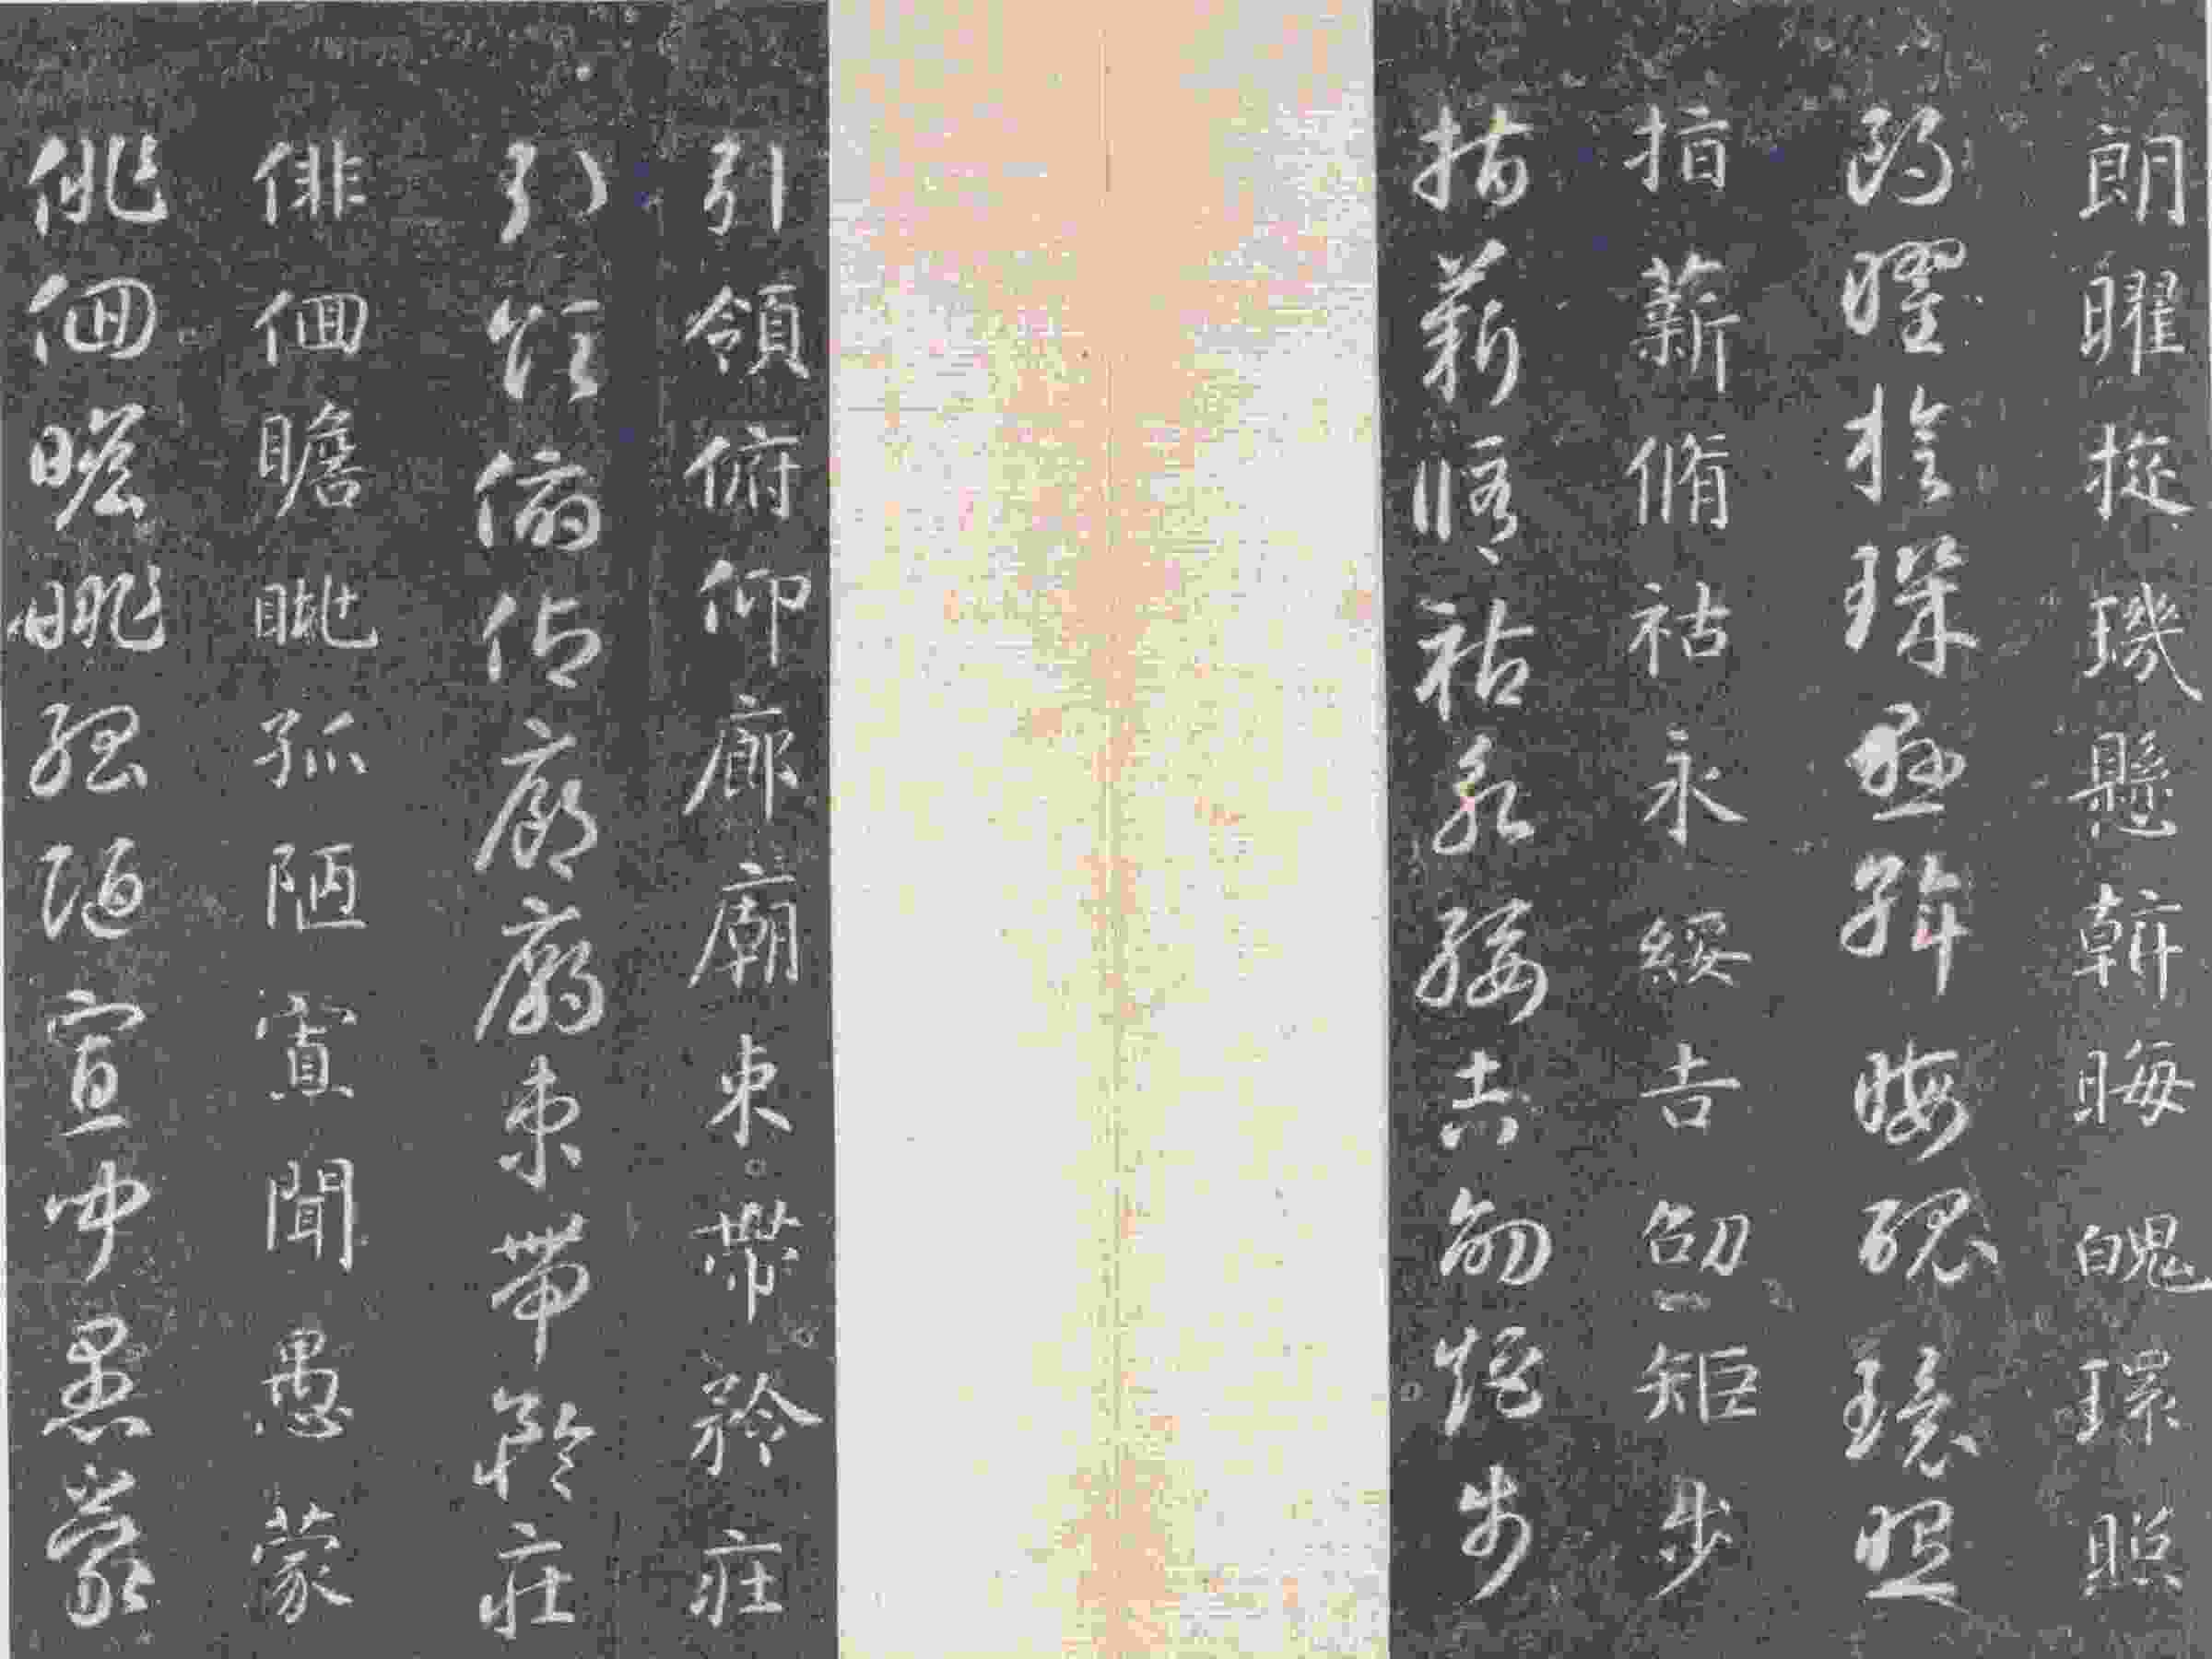 朗曜捉璣懸斡晦魄環照
朗曜捉璣懸斡晦魄環照
指薪脩祜永綏吉劭矩步
指薪脩祜永綏吉劭矩步
引領俯仰廊廟束帶矜莊
引領俯仰廊廟束帶矜莊
俳佪瞻眺孤陋寡聞愚蒙
俳佪瞻眺孤陋寡聞愚蒙